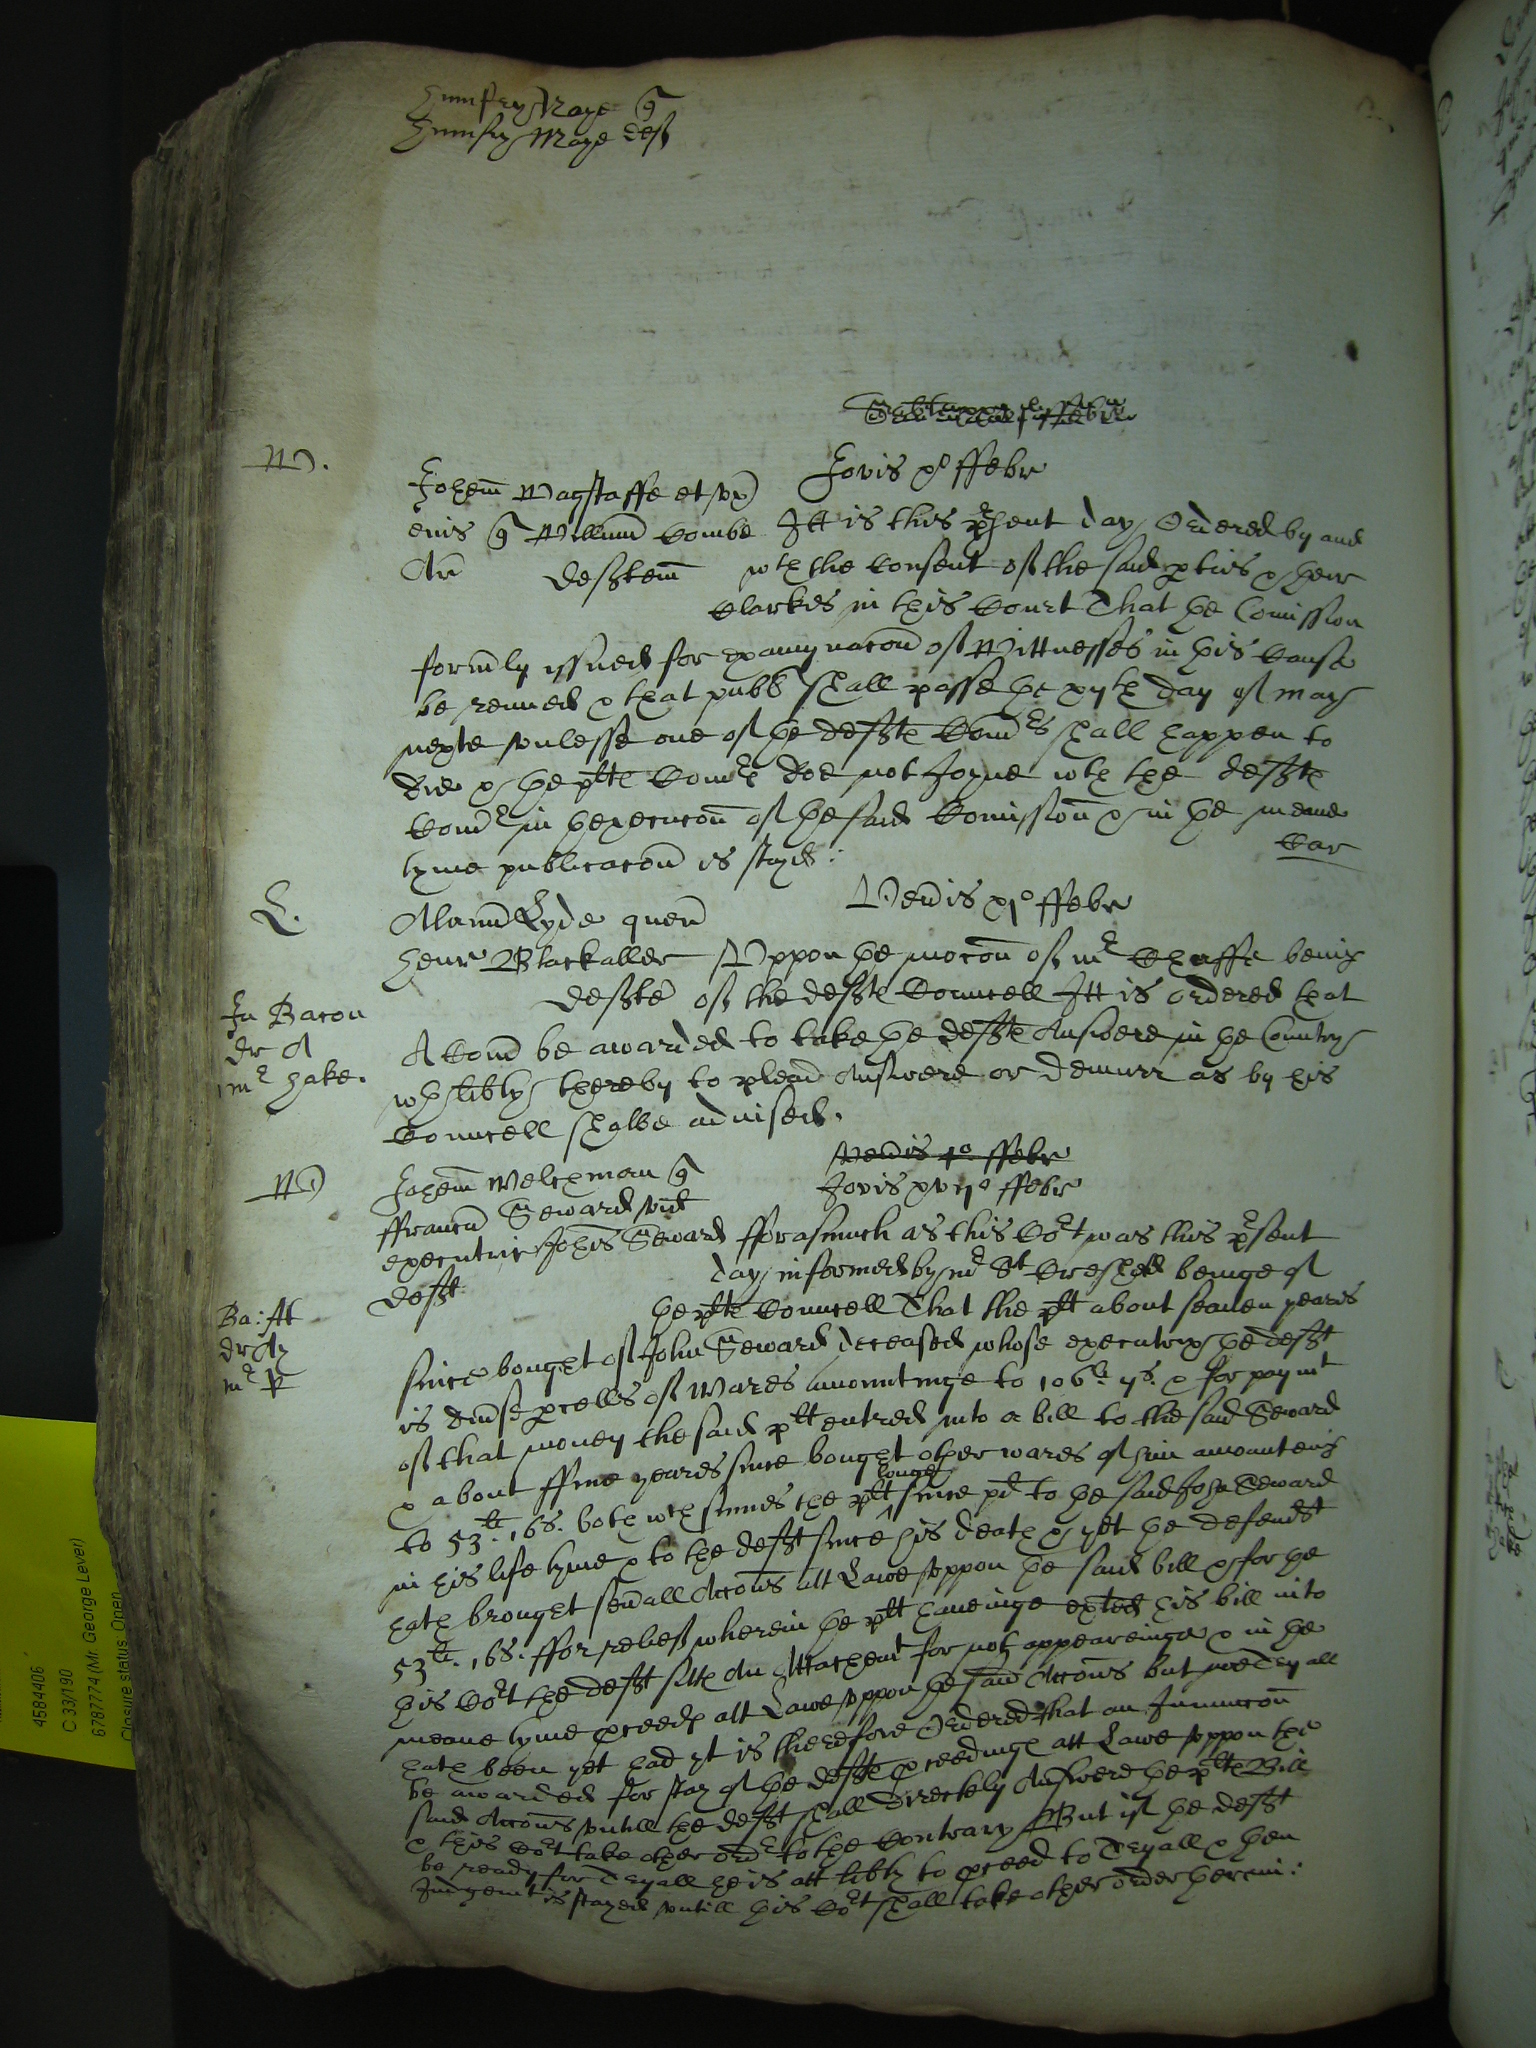 Humfry Maye q
Humfry Maye def
Jovis x° ffebr
W.
Johem Wagstaffe et ux
eius q Willum Combe Itt is this pesent day Ordered by and
Ar defftem wth the Consent of the said pties & their
Clarkes in this Court That the Comission
formly yssued for examynacon of Wittnesses in this Cause
be renued & that publ shall passe the xyth day of May
nexte unlesse one of the defftes Comrs shall happen to
die & the pltes Comrs doe not Joyne wth the defftes
Comr in thexecucon of the said Comission & in the meane
tyme publicacon is stayed: Car
L. Alanum Lyde quen
Venis xj° ffebr
Henr Blackaller Uppon the mocon of mr Chaffe being
deffte of the defftes Councell Itt is ordered that
Jn Bacon
dr A
mr Hake.
A Com be awarded to take the defftes Answere in the Country
wth libty thereby to plead Answere or demurr as by his
Councell shalbe advised.
Venis ffebr
W
Johem Welchman q
Jovis xvij° ffebr
ffrancu Seward vid
executric Johis Seward fforasmuch as this Cort was this psent
defft day informed by mr beinge of
the pltes Councell That the plt about seaven yeares
Ba: At
dr Ay
mr P
since bought of John Seward deceased whose executrix the defft
is divse pcells of Wares amountinge to 106li. ys. & for paymt
of that money the said plt entred into a bill to the said Seward
& about ffive yeares since bought other wares of him amounteing
to 53li. 16s. both wch sumes the plt longe since pd to the said John Seward
in his life tyme & to the defft since his death & yet the defendt
hath brought sevall Accons att Lawe uppon the said bill & for the
53li. 16s. ffor releif wherein the plt haveinge exted his bill into
this Cort the defft sitts An Attachemt for not appeareinge & in the
meane tyme pceeds att Lawe uppon the said Accons but noe Tryall
hath been yet had yt is therefore Ordered that an Iniunccon
be awarded for stay of the defftes pceedings att Lawe uppon the
said Accons untill the defft shall directely Answere the pltes Bill
& this Cort take other ordr to the Contrary But if the defft
be ready for Tryall he is att libty to pceed to Tryall & then
Judgemt is stayed untill this Cort shall take other order herein:
4584406
C 33/190
6787774 (Mr. George Lever)
Closure status: Open